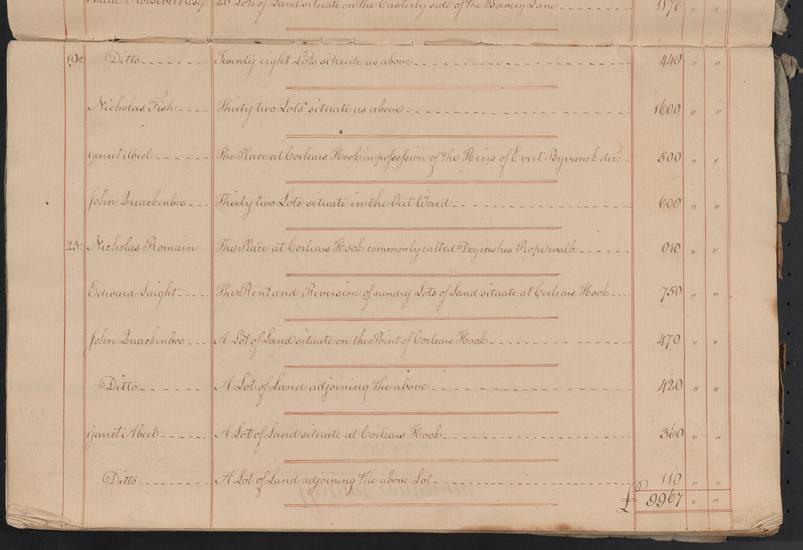 20 Lots of Land situate on the Easterly side of the Bowery Lane 1176 " "
19 Ditto Twenty eight Lots situate as above 440 " "
Nicholas Fish Thirty two Lots situate as above 1600 " "
Garret Abeel The Place at Corlears Hook in possession of the Heirs of Evert Byvanck dec 500 " "
John Quackenbos Thirty two Lots situate in the Out Ward 600 " "
23 Nicholas Romain The Place at Corlears Hook commonly called Ropewalk " "
Edward Laight The Rent and Reversion of sundry Lots of Land situate at Corlears Hook 750 " "
John Quackenbos A Lot of Land situate on the Point of Corlears Hook 470 " "
Ditto A Lot of Land adjoining the above 420 " "
Garret Abeel A Lot of Land situate at Corlears Hook 360 " "
Ditto A Lot of Land adjoining the above Lot 110 " "
£ 9967 " "